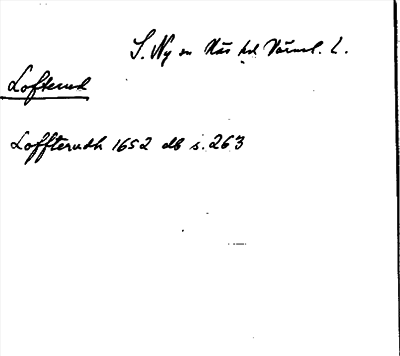 S. Ny sn Näs hd Värml. L.
Lofterud
Loffterudh 1652 db s. 263